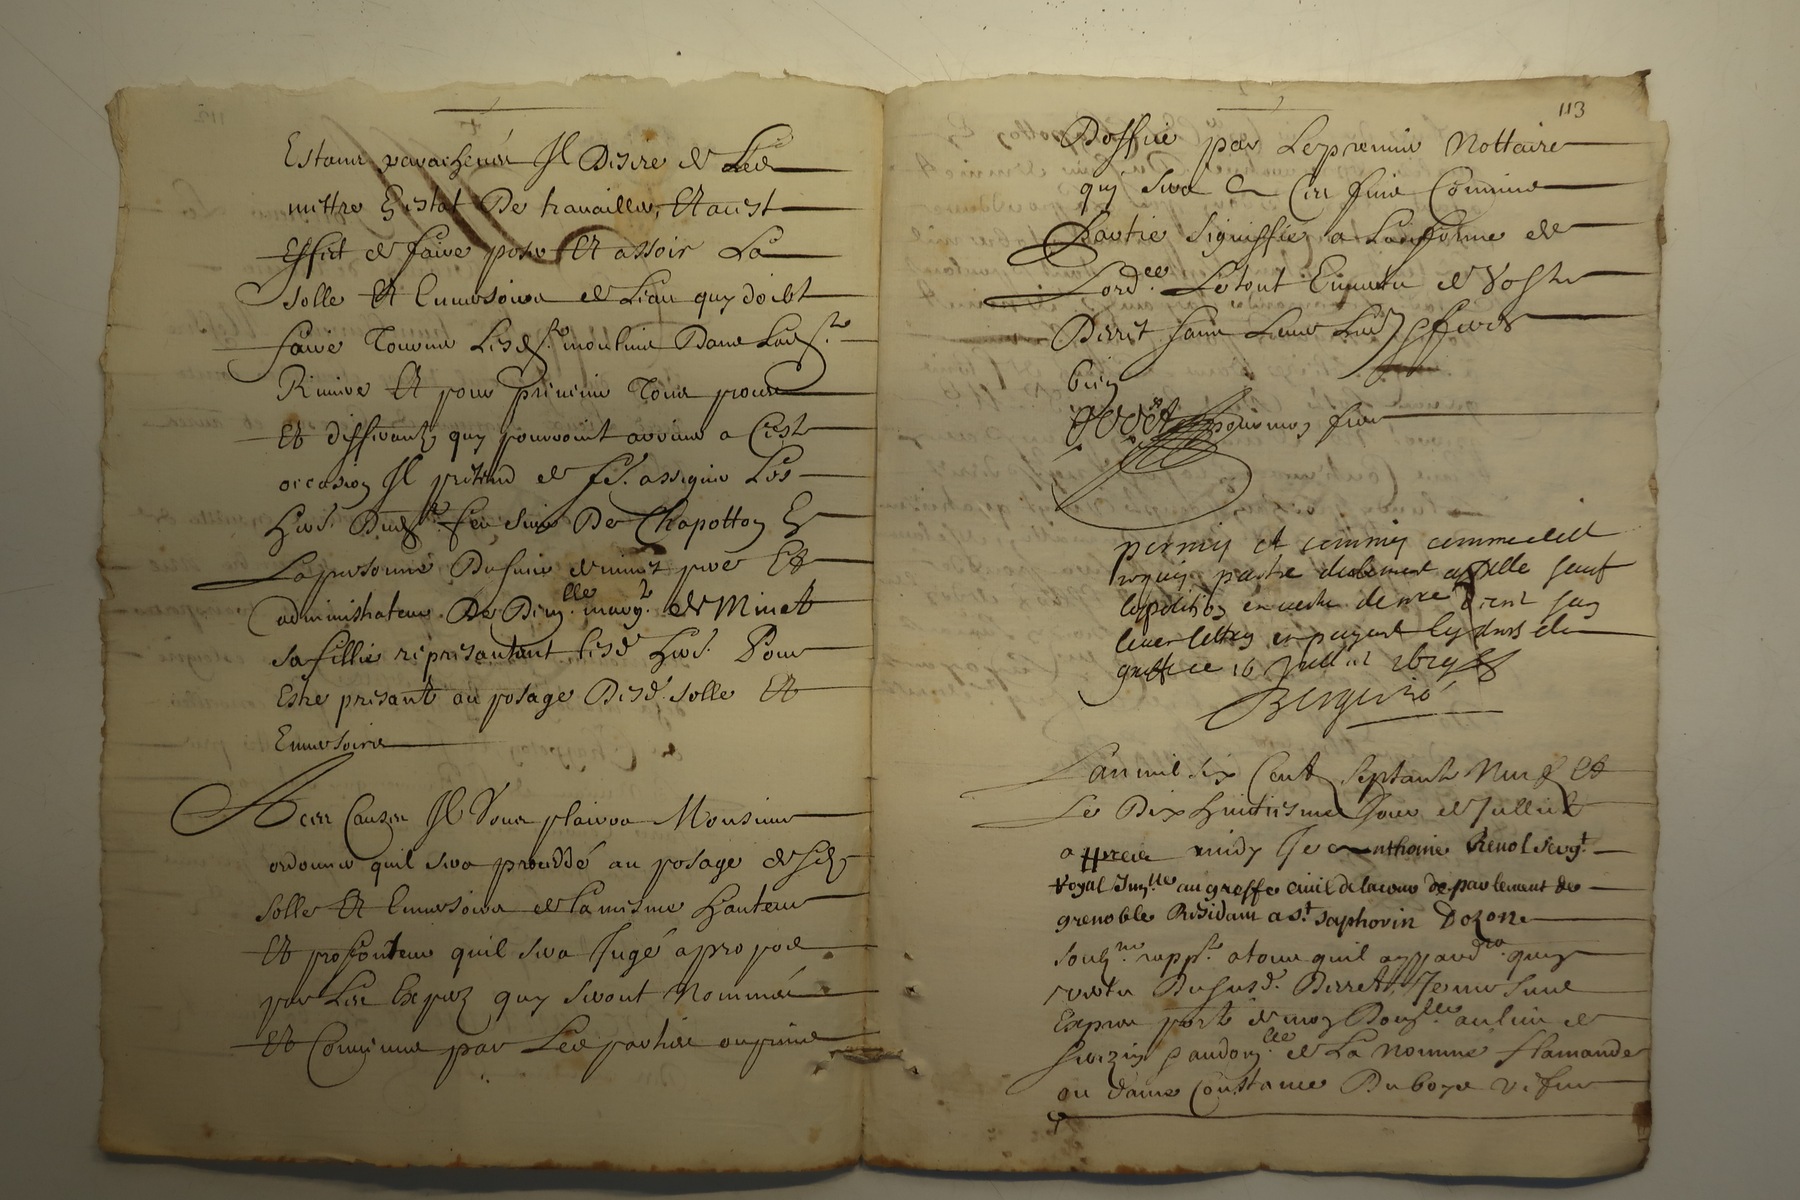 Estant parachevés Il Desire de Les
mettre En estat De travailler, Et a cest
Effect de faire poser Et assoir La
solle Et Ennesoire de L'eau quy doibt
faire Tourner Lesd. moulins Dans Lad.
Riviere Et pour prevenir Tous proces
Et differantz quy pourroint arriver a Ceste
occasion Il prétend de fe. assigner Les
Hoirs Dud. feu sieur De Chapotton En
La personne Du sieur de minet pere Et
administrateur De Dem.lle marg.te de Minet
sa fillie réprésantant lesd. Hoirs Pour
Estre présant au posage Desd. solle Et
Ennesoire
A ces Causes Il Vous plairra Monsieur
ordonner quil sera proceddé au posage desd.
solle Et Ennesoire de la mesme Hauteur
Et profonteur quil sera Jugé a propos
par Les Expertz quy seront Nommés
Et Convenus par Les parties ou prins
113
D'office par Le premier Nottaire
quy sera En Ces fins Commis
Partie signiffiée a La forme de
L'ord.ce Le tout En vertu de Vostre
Decret sans Lever Lettres Et ferés
bien
permis et commis comme est
requis partie deubment appellé sauf
lopposition en vertu de nre decret sans
lever lettres en payant les droits du
greffe ce 16 Juillet 1679
L'an mil six Cent Septante Neuf Et
Le Dix Huitiesme Jour de Juillet
apres midy Je Anthoine Renol serg.t
Royal Im.lle au greffe civil de la cour de parlement de
grenoble Résidant a S.t Saphorin Dozon
soub.né rapp.te a tous quil appard.ra quen
vertu Du susd. Decret Je me suis
Expres porté de moy Dom.lle au lieu de
Serezin Dom.lle de La Nommé flamande
ou dame Constance Duboys vefve